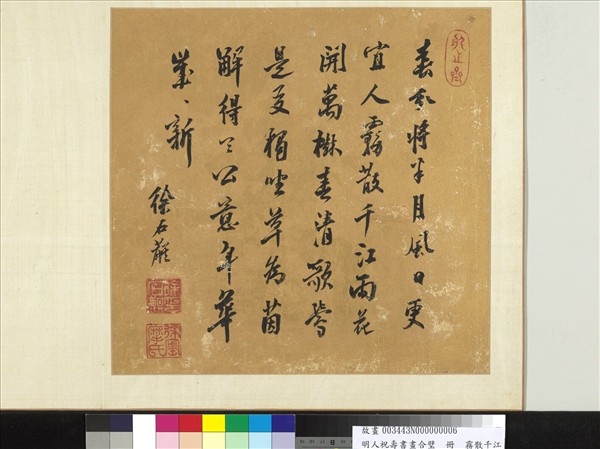 春將半月風日更
宜人霧散千江雨花
開萬樹春清歌鶯
是友獨坐草為茵
解得天公意年華
歲〻新
徐石麒
故畫 003443N000000006
明人祝壽書畫合璧 冊 霧散千江